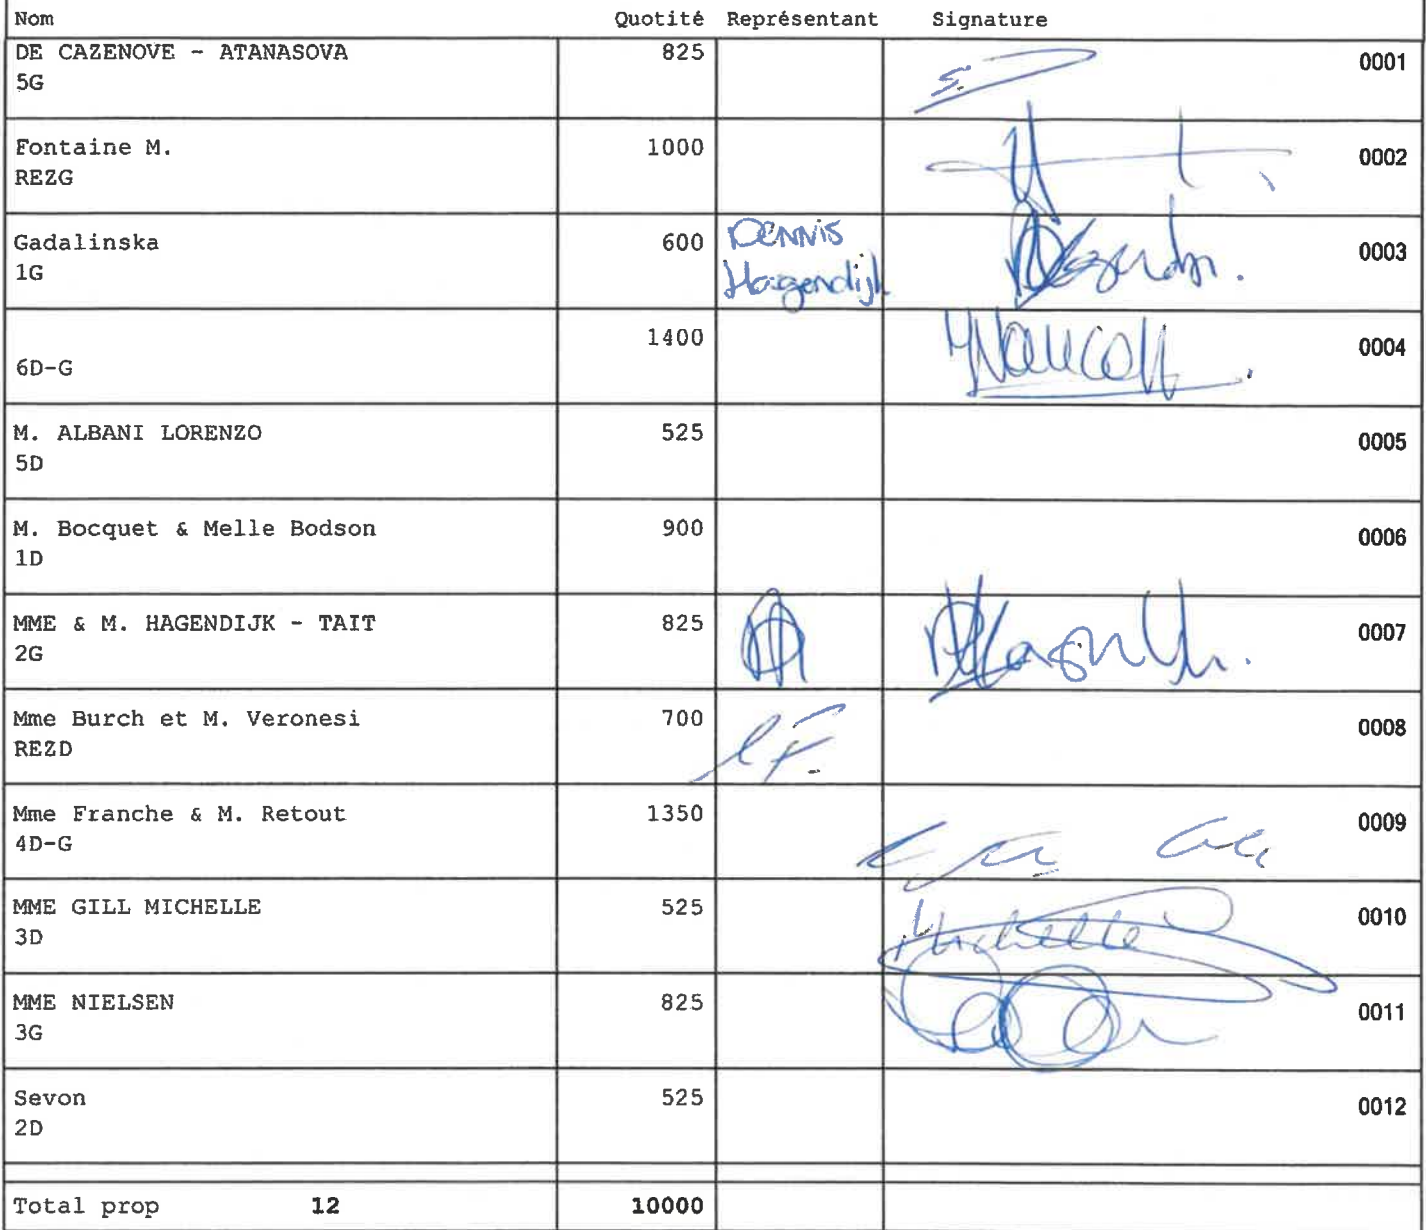 Nom Quotité Représentant Signature
DE CAZENOVE - ATANASOVA 825 0001
5G
Fontaine M. 1000 0002
REZG
Gadalinska 600 Dennis 0003
1G Hagendijk
1400 0004
6D-G
M. ALBANI LORENZO 525 0005
5D
M. Bocquet & Melle Bodson 900 0006
1D
MME & M. HAGENDIJK - TAIT 825 0007
2G
Mme Burch et M. Veronesi 700 0008
REZD
Mme Franche & M. Retout 1350 0009
4D-G
MME GILL MICHELLE 525 Michelle 0010
3D
MME NIELSEN 825 0011
3G
Sevon 525 0012
2D
Total prop 12 10000